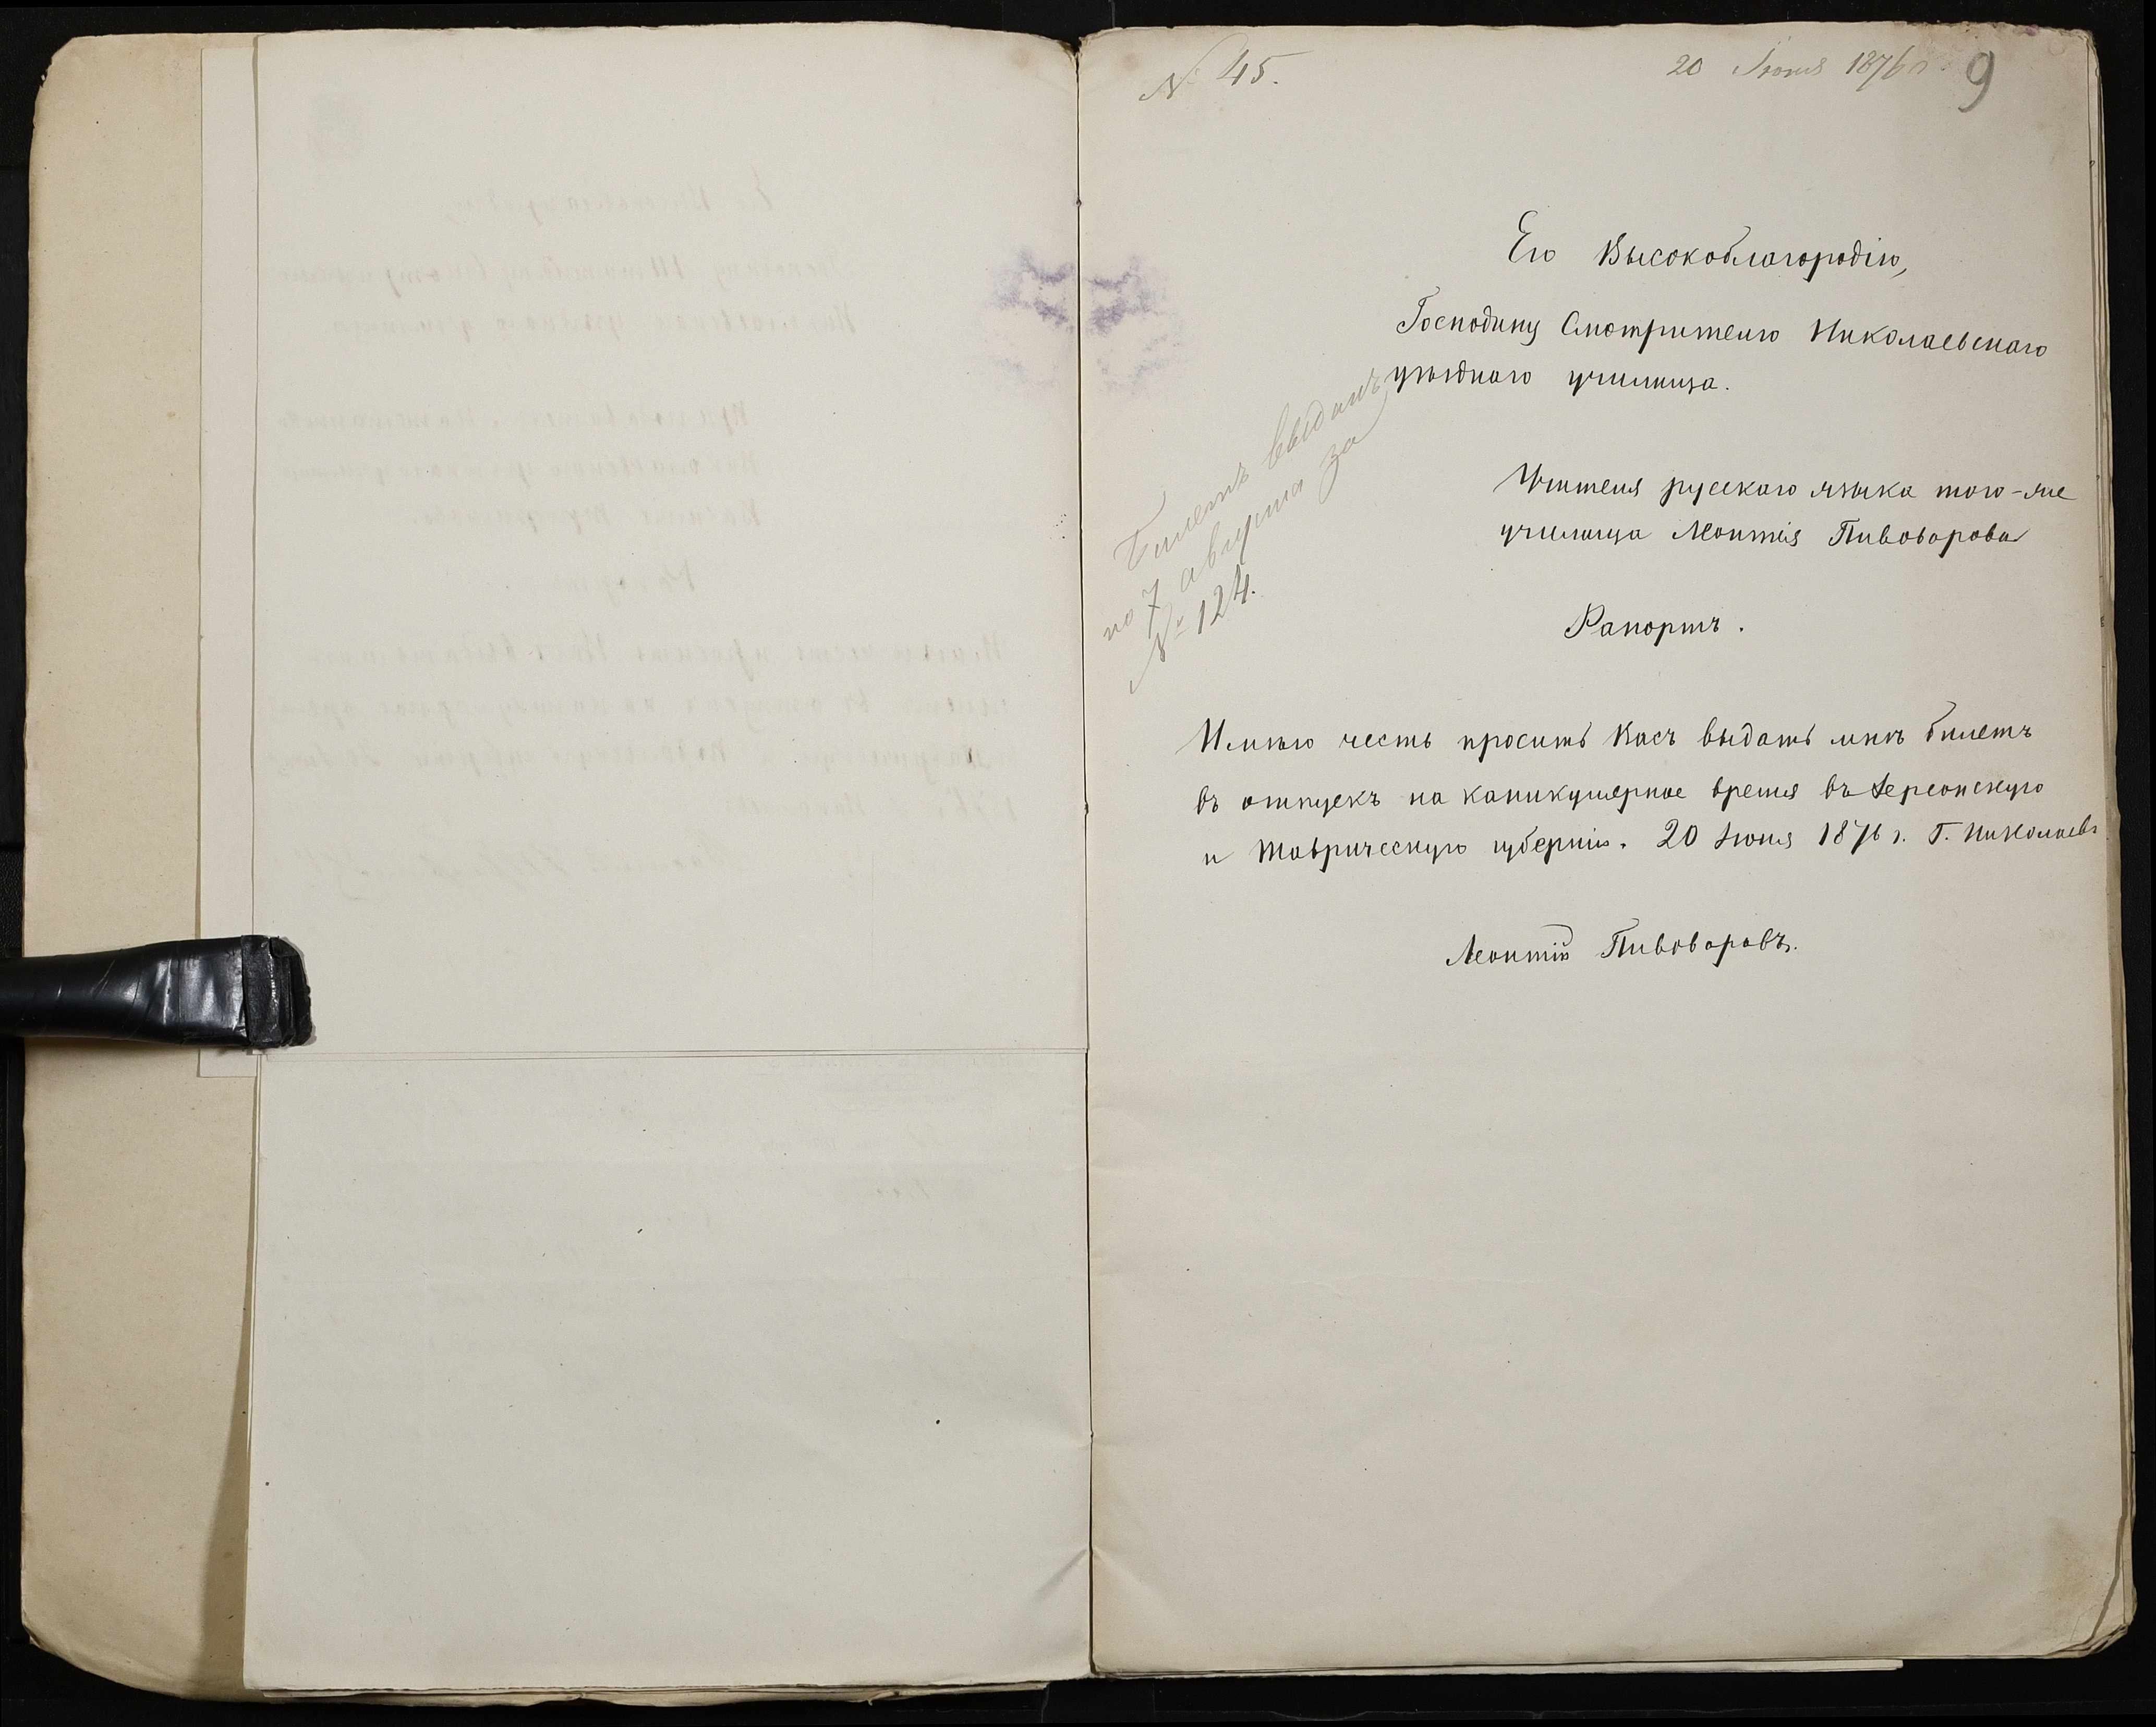 № 45.
20 Іюня 1876 г.
9
Его Высокоблагородію,
Господину Смотрителю Николаевскаго
уѣзднаго училища.
Билетъ выданъ
по 7 августа за
№ 124.
Учителя русскаго языка того-же
училища Леонтія Пивоварова
Рапортъ.
Имѣю честь просить Васъ выдать мнѣ билетъ
въ отпускъ на каникулярное время въ Херсонскую
и Таврическую губерніи. 20 Іюня 1876 г. Г. Николаевъ
Леонтій Пивоваровъ.